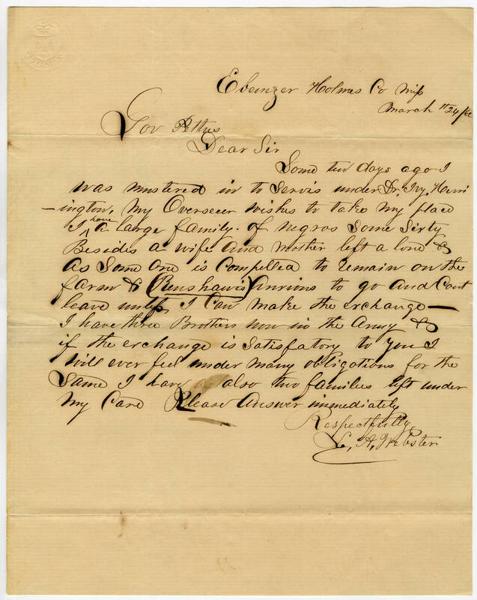 Ebenezer Holmes Co Miss
March 11th 24 /62
Gov Pettus
Dear Sir
Some ten days ago I
was mustered in to Servis under Dr. Ivy. Harri
-ington, My Overseer wishes to take my place
I have a large family. of negros Some Sixty
Besides a wife and mother left a lone &
As Some One is Compelled to remain on the
farm & (Renshaw) anxious to go and Cant
leave unless I Can make the exchange—
I have three Brothers now in the Army &
if the exchange is Satisfactory to you I
will ever feel under many obligations for the
Same I have also two families left under
My Care Please Answer immediately
Respectfully
A, Webster